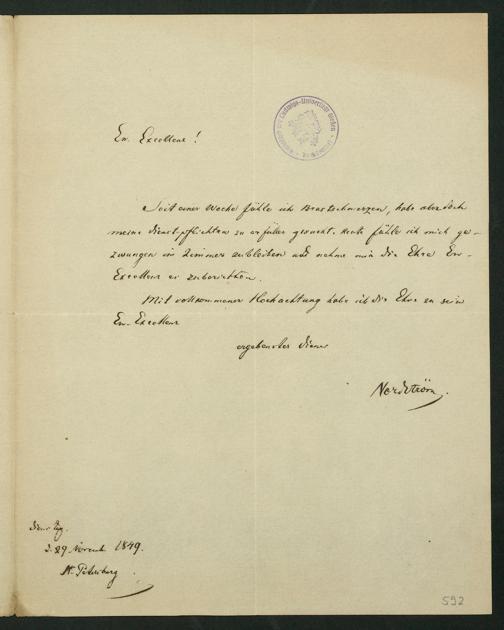 Ew. Excellenz!
Seit einer Woche fühle ich Brustschmerzen, habe aber doch
meine Dienstpflichten zu erfüllen gesucht. Heute fühle ich mich ge-
zwungen im Zimmer zu bleiben und nehme mir die Ehre Ew.
Excellenz es zu berichten.
Mit vollkommener Hochachtung habe ich die Ehre zu sein
Ew. Excellenz
ergebenster Diener
Nordström.
d. 29 Novemb 1849.
St. Petersburg
592